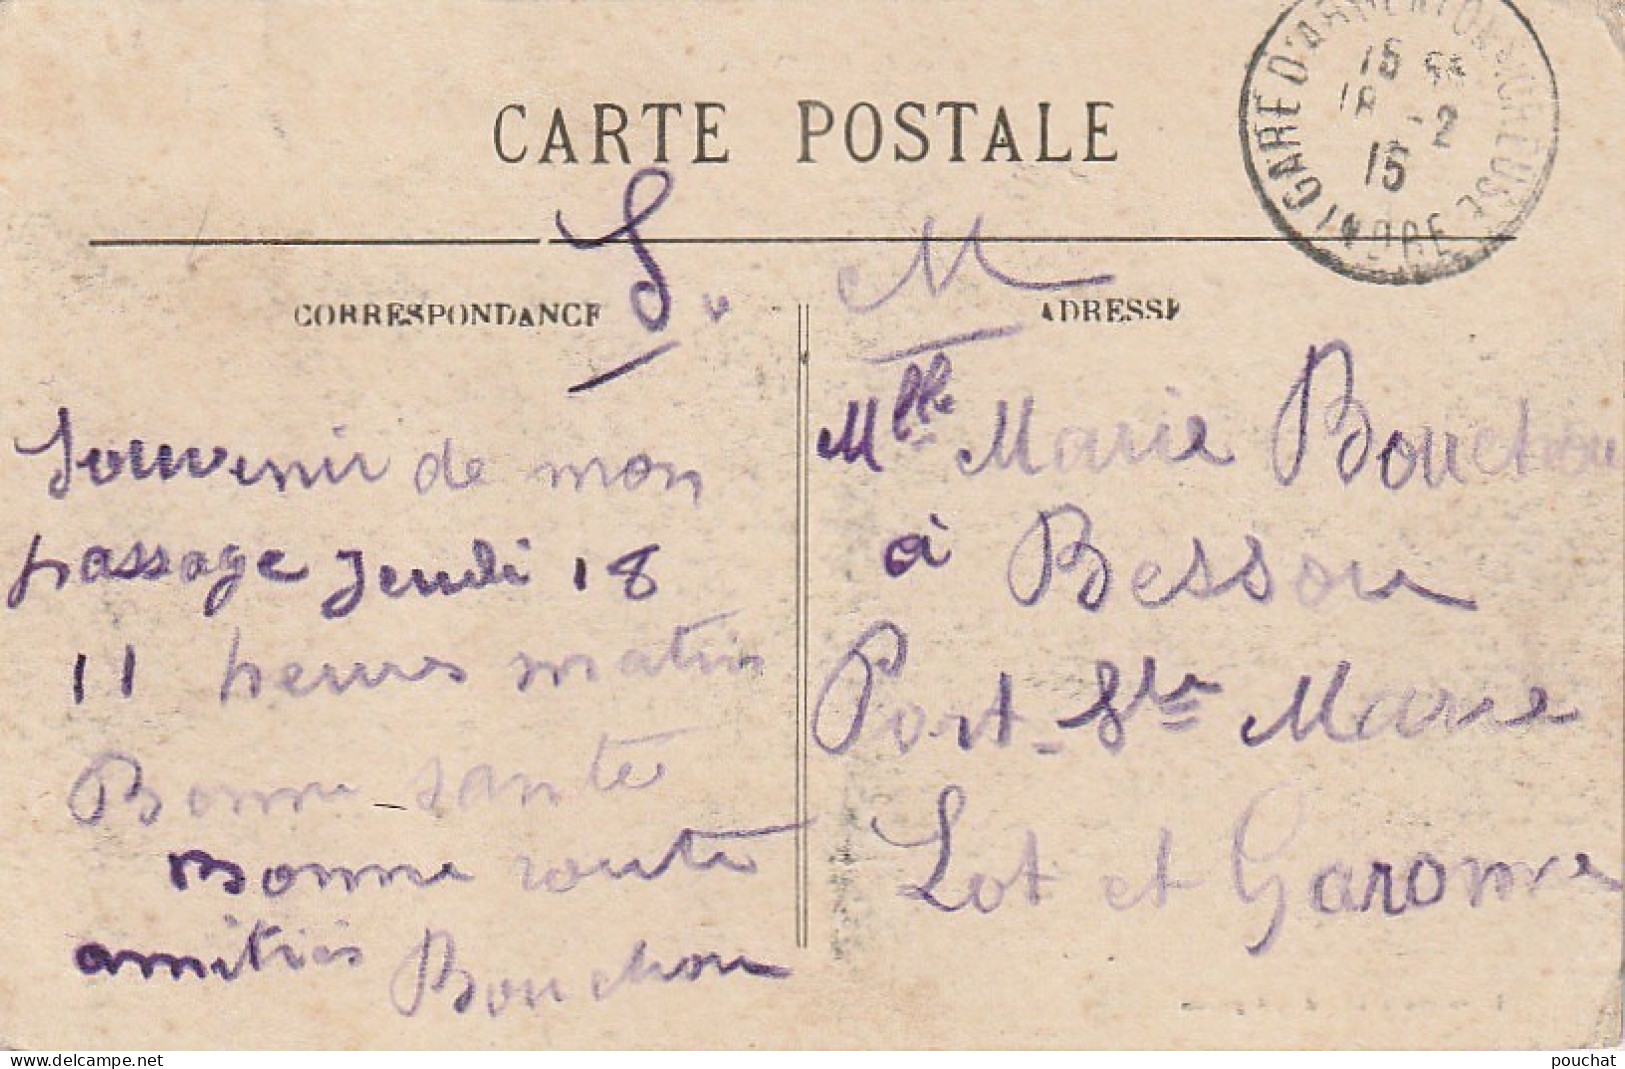 CARTE POSTALE
GARE D'ARGENTON-S-CREUSE
INDRE
15
18 -2
15
S. M
CORRESPONDANCE
ADRESSE
Souvenir de mon
passage Jeudi 18
11 heures matin
Bonne santé
Bonne route
amitiés Bouchou
Mlle Marie Bouchou
à Bessou
Port-Ste Marie
Lot et Garonne
pouchat
delcampe.net